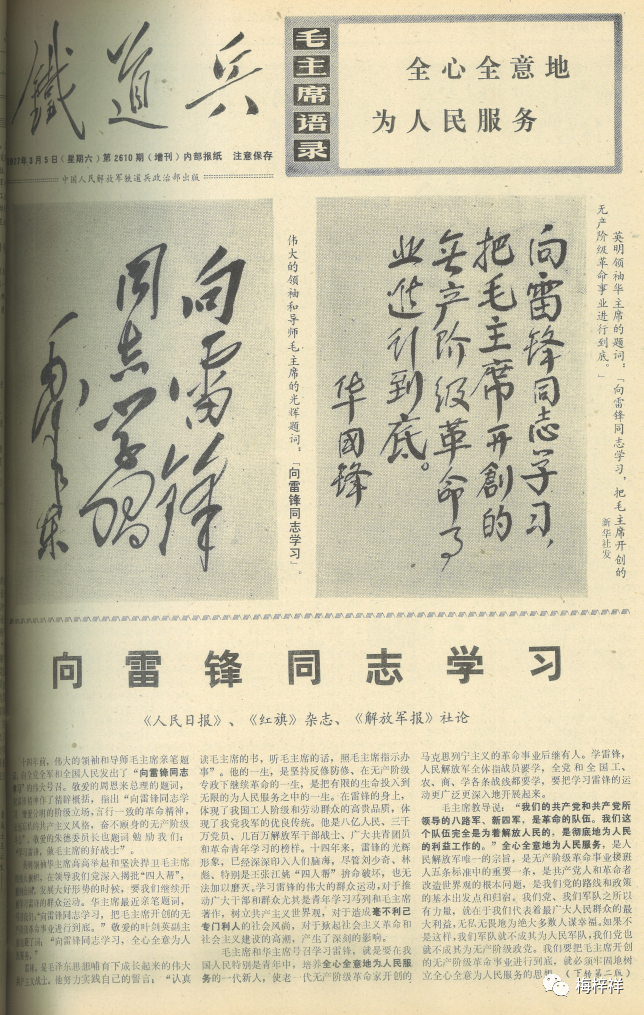 鐵道兵
毛主席语录
全心全意地
为人民服务
年3月5日（星期六）第2610期（增刊）内部报纸 注意保存
中国人民解放军铁道兵政治部出版
向雷锋
同志学习
毛泽东
伟大的领袖和导师毛主席的光辉题词：「向雷锋同志学习」。
向雷锋同志学习，
把毛主席开創的
无产阶级革命事
业进行到底。
华国锋
英明领袖华主席的题词：「向雷锋同志学习，把毛主席开创的
无产阶级革命事业进行到底。」
新华社发
向雷锋同志学习
《人民日报》、《红旗》杂志、《解放军报》社论
十四年前，伟大的领袖和导师毛主席亲笔题
向全党全军和全国人民发出了“向雷锋同志
学习”的伟大号召。敬爱的周恩来总理的题词，
作了精辟概括，指出“向雷锋同志学
分明的阶级立场，言行一致的革命精神，
的共产主义风格，奋不顾身的无产阶级
敬爱的朱德委员长也题词勉励我们：
“学习雷锋，做毛主席的好战士”。
英明领袖华主席高高举起和坚决捍卫毛主席
在领导我们党深入揭批“四人帮”，
发展大好形势的时候，要我们继续开
学习雷锋的运动。华主席最近亲笔题词，
“向雷锋同志学习，把毛主席开创的无
产阶级革命事业进行到底。”敬爱的叶剑英副主
席题了词：“向雷锋同志学习，全心全意为人
民服务。”
雷锋，是毛泽东思想哺育下成长起来的伟大
共产主义战士。他努力实践自己的誓言：“认真
读毛主席的书，听毛主席的话，照毛主席指示办
事”。他的一生，是坚持反修防修、在无产阶级
专政下继续革命的一生，是把有限的生命投入到
无限的为人民服务之中的一生。在雷锋的身上，
体现了我国工人阶级和劳动群众的高贵品质，体
现了我党我军的优良传统。他是八亿人民、三千
万党员、几百万解放军干部战士、广大共青团员
和革命青年学习的榜样。十四年来，雷锋的光辉
形象，已经深深印入人们脑海，尽管刘少奇、林
彪、特别是王张江姚“四人帮”拚命破坏，也无
法加以磨灭。学习雷锋的伟大的群众运动，对于推
动广大干部和群众尤其是青年学习马列和毛主席
著作，树立共产主义世界观，对于造成毫不利己
专门利人的社会风尚，对于掀起社会主义革命和
社会主义建设的高潮，产生了深刻的影响。
毛主席和华主席号召学习雷锋，就是要在我
国人民特别是青年中，培养全心全意地为人民服
务的一代新人，使老一代无产阶级革命家开创的
马克思列宁主义的革命事业后继有人。学雷锋，
人民解放军全体指战员要学，全党和全国工、
农、商、学各条战线都要学，要把学习雷锋的运
动更广泛更深入地开展起来。
毛主席教导说：“我们的共产党和共产党所
领导的八路军、新四军，是革命的队伍。我们这
个队伍完全是为着解放人民的，是彻底地为人民
的利益工作的。”全心全意为人民服务，是人
民解放军唯一的宗旨，是无产阶级革命事业接班
人五条标准中的重要一条，是共产党人和革命者
改造世界观的根本问题，是我们党的路线和政策
的基本出发点和归宿。我们党、我们军队之所以
有力量，就在于我们代表着最广大人民群众的最
大利益，无私无畏地为绝大多数人谋幸福。如果不
是这样，我们军队就不成其为人民军队，我们党也
就不成其为无产阶级政党。我们要把毛主席开创
的无产阶级革命事业进行到底，就必须牢固地树
立全心全意为人民服务的思想（下转第二版）
梅梓祥